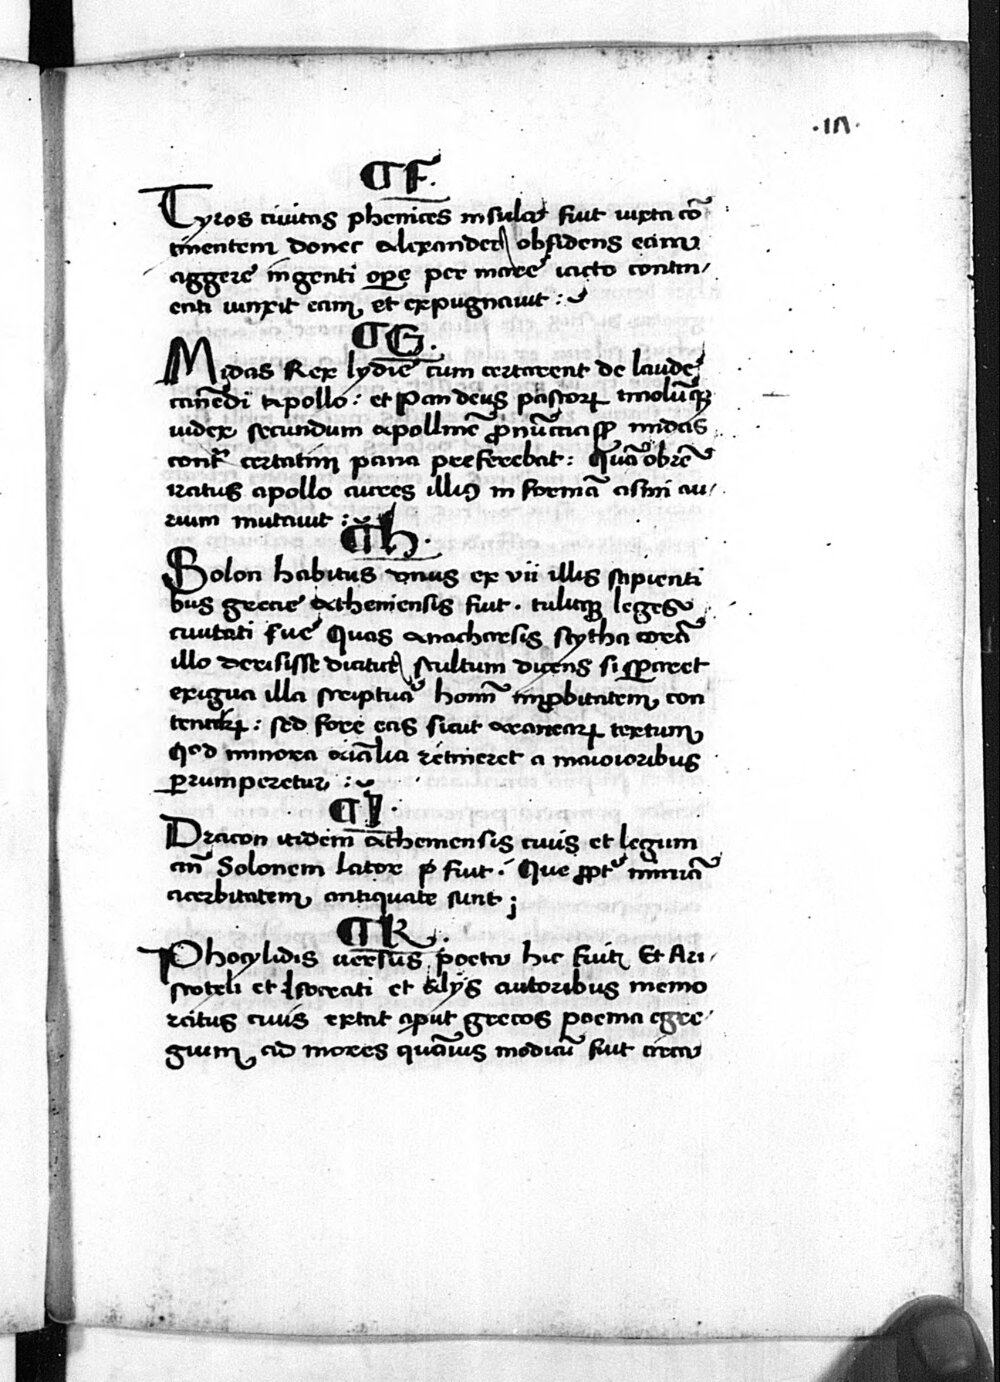 ¶ F.
Tyros ciuitas phenices insula fuit iuxta cō
tinentem donec Alexander obsidens eam
aggere ingenti ope per mare iacto contin/
enti iunxit eam et expugnauit :
¶ G.
Midas Rex lydie cum certarent de laude
canēdi Apollo : et Pan deus pastorꝝ tmolusqꝫ
iudex secundum apollinē ꝓnūciass midas
contᷓ certatim pana preferebat : Quā obrē
iratus apollo aures illiꝰ in formā asini au/
rium mutauit :
¶ h.
Solon habitus vnus ex vii illis sapienti
bus grecie Atheniensis fuit . tulitqꝫ leges
ciuitati sue Quas anacharsis scytha corā
illo derisisse dicitur stultum dicens si speraret
exigua illa scriptura homī improbitatem con
tentarꝝ : sed fore eas sicut aranearꝝ textum
Qꝛd minora aīalia retineret a maioioribus
ꝑrumperetur :
¶ I.
Dracon itidem atheniensis ciuis et legum
an̄ Solonem lator p fuit . Que ꝓpt nimiā
acerbitatem antiquate sunt ;
¶ K.
Phocylidis uersus poeta hic fuit Et Ari/
stoteli et Isocrati et alijs autoribus memo
ratus cuius extat aput grecos poema egre/
gium ad mores quāuis modicū fuit circa